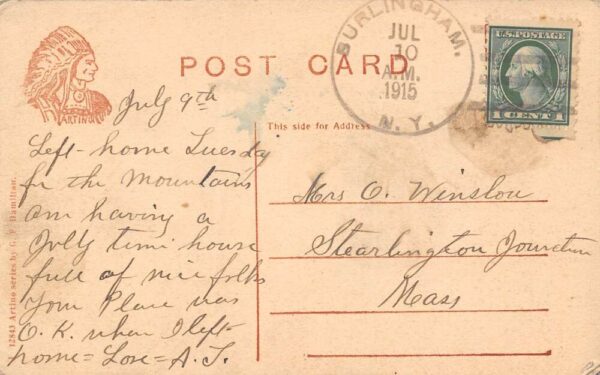 BURLINGHAM,
JUL
10
A.M.
1915
N.Y.
U.S. POSTAGE
1 CENT 1
POST CARD
ARTINO
July 9th
This side for Address
Left home Tuesday
for the Mountains
am having a
Jolly time house
full of nice folks
Your Place was
O.K. when I left
home = Love = A.J.
Mrs O. Winslou
Stearlington Jounction
Mass
12843 Artino series by G. F. Hamilton.